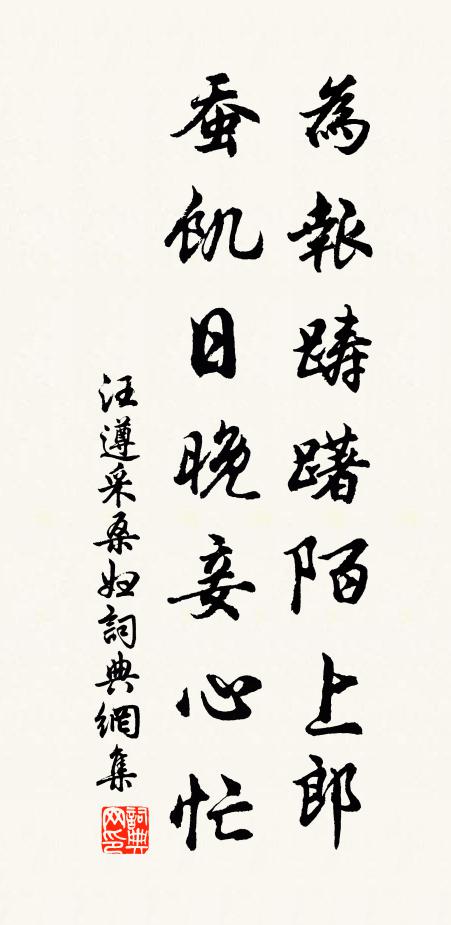 為報躊躇陌上郎
蚕飢日晚妾心忙
汪遵采桑婦詞典網集
詞典網印